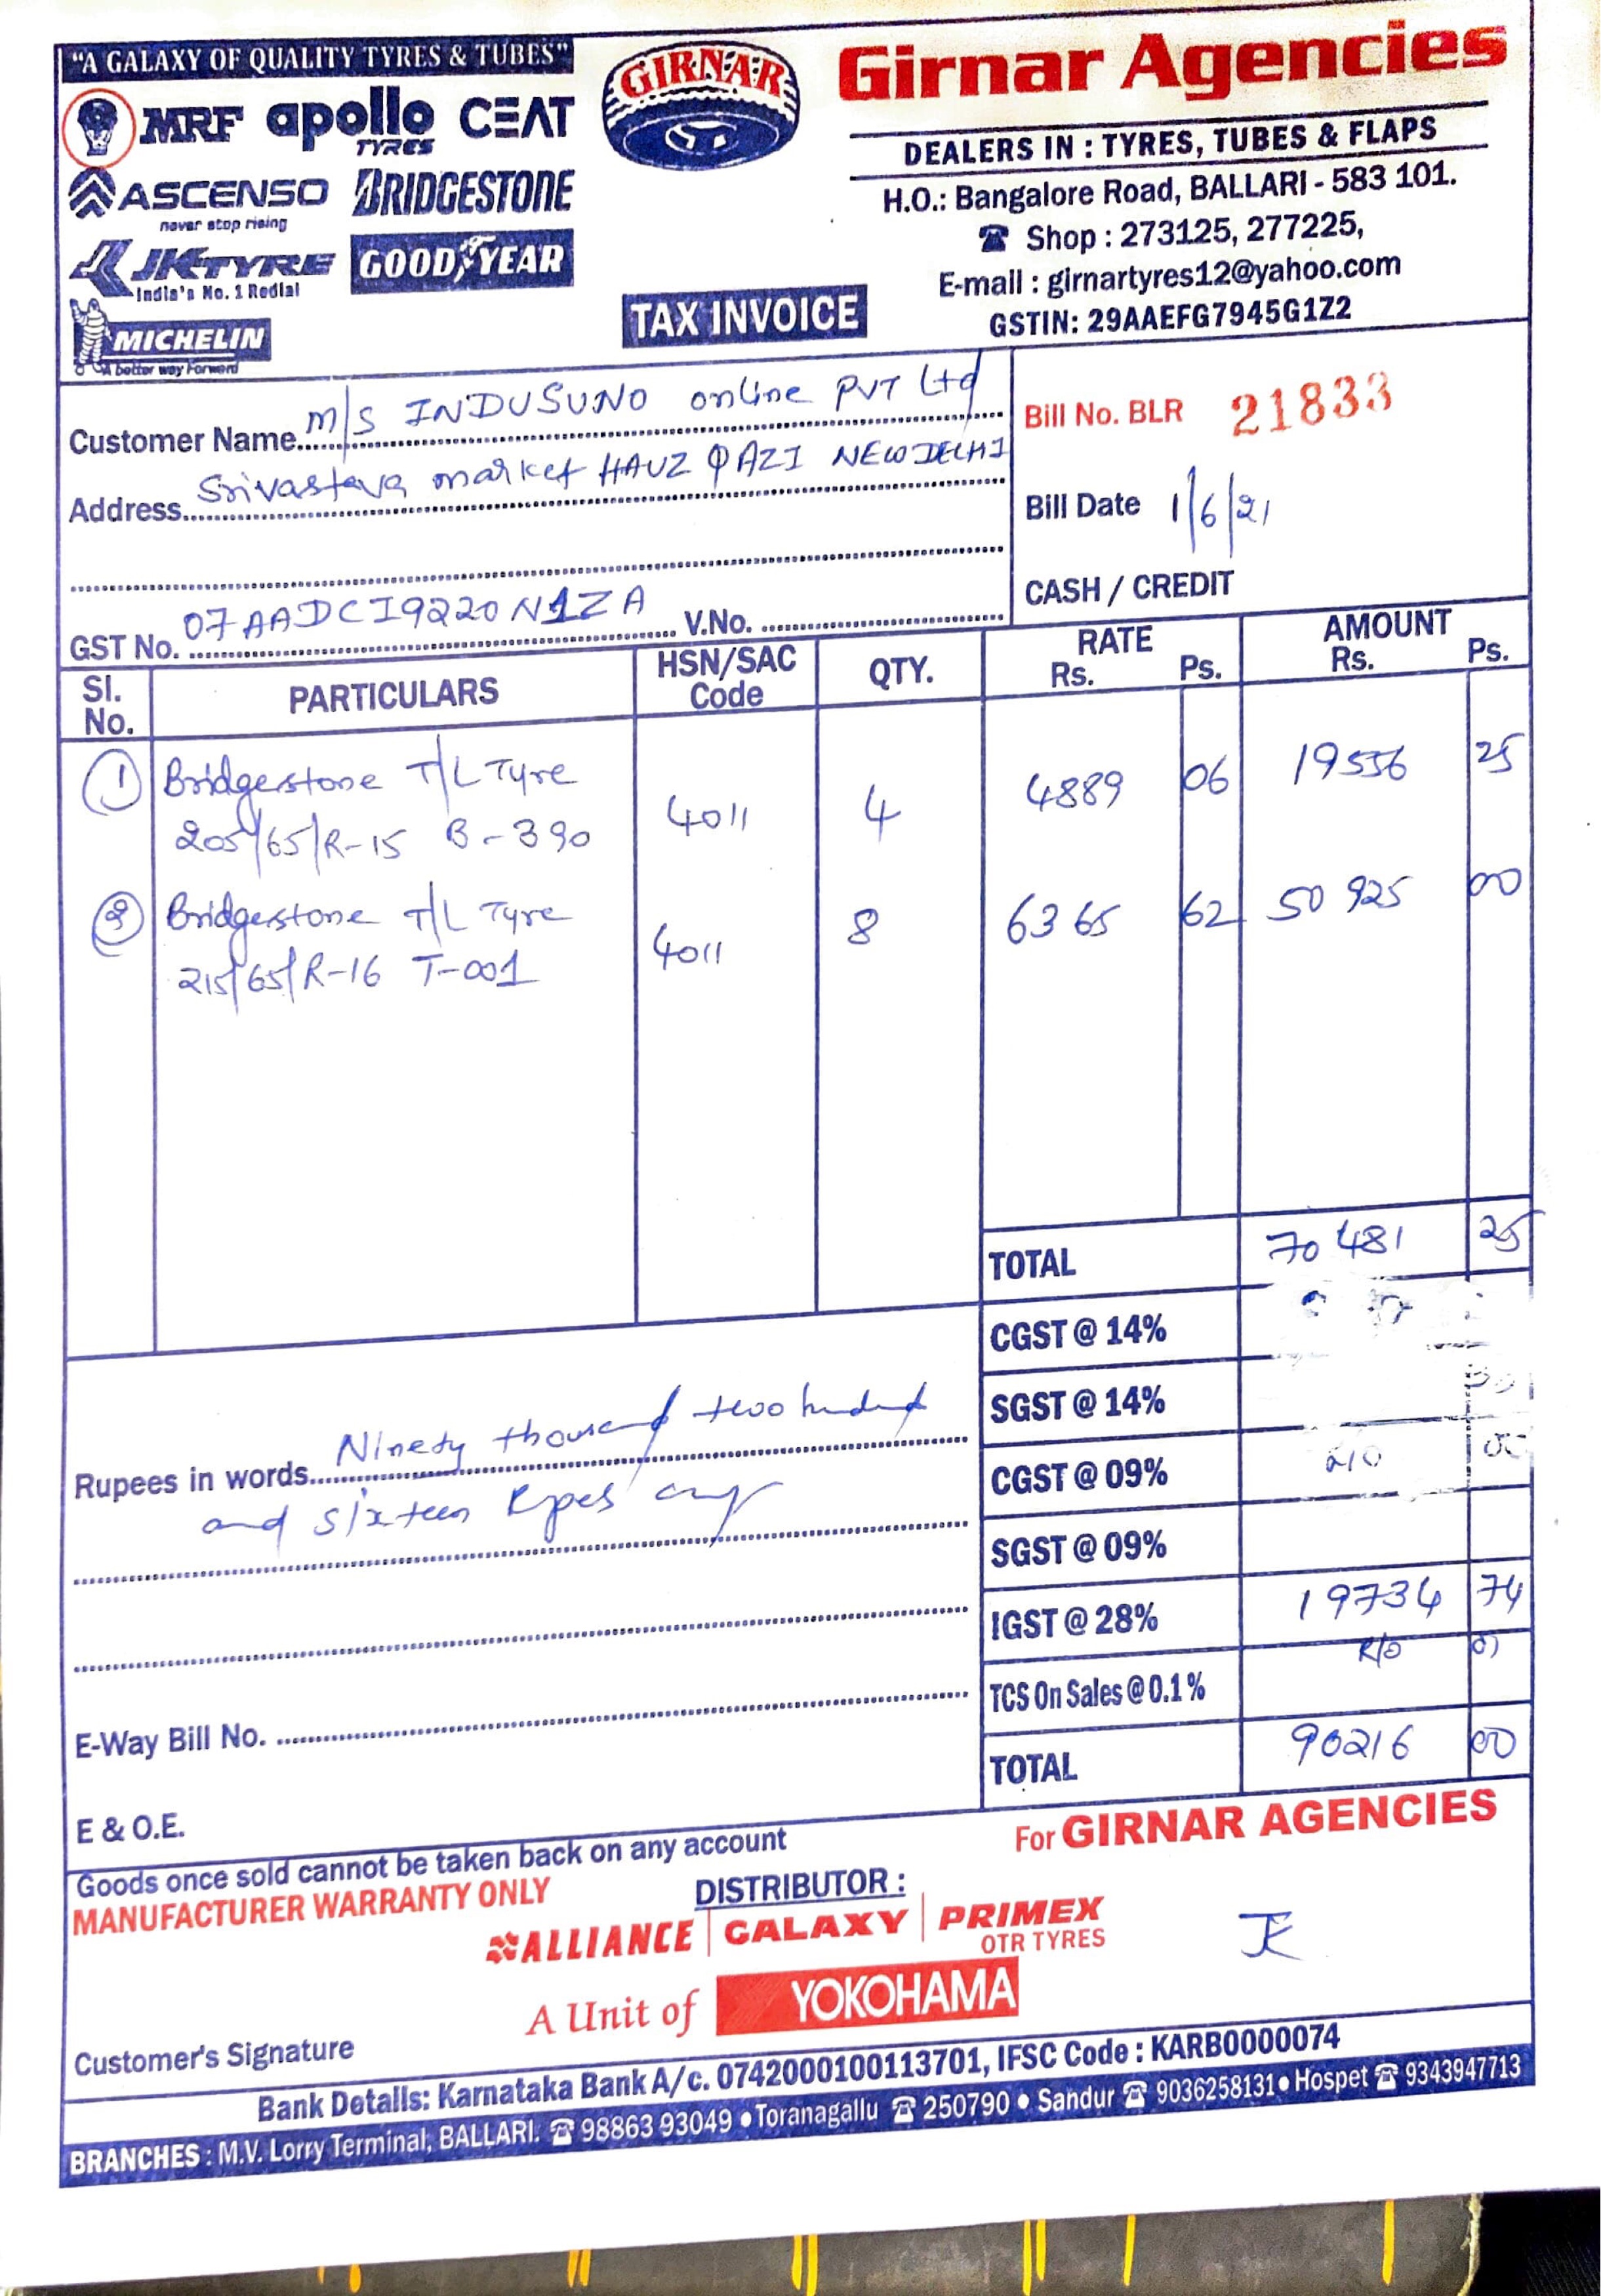 "A GALAXY OF QUALITY TYRES & TUBES"
MRF apollo TYRES CEAT
ASCENSO never stop rising BRIDGESTONE
JK TYRE India's No. 1 Redial GOOD YEAR
MICHELIN A better way Forward
GIRNAR
TAX INVOICE
Girnar Agencies
DEALERS IN : TYRES, TUBES & FLAPS
H.O.: Bangalore Road, BALLARI - 583 101.
☎ Shop : 273125, 277225,
E-mail : girnartyres12@yahoo.com
GSTIN: 29AAEFG7945G1Z2
Customer Name M/S INDUSUNO online PVT Ltd
Address Srivastava market HAUZ QAZI NEW DELHI
GST No. 07AADCI9220N1ZA V.No.
Bill No. BLR 21833
Bill Date 1/6/21
CASH / CREDIT
Sl. No. PARTICULARS HSN/SAC Code QTY. RATE Rs. Ps. AMOUNT Rs. Ps.
1 Bridgestone T/L Tyre 4011 4 4889 06 19556 25
205/65/R-15 B-390
2 Bridgestone T/L Tyre 4011 8 6365 62 50925 00
215/65/R-16 T-001
TOTAL 70481 25
CGST @ 14%
SGST @ 14%
CGST @ 09%
SGST @ 09%
IGST @ 28% 19734 74
R/o 01
TCS On Sales @ 0.1%
TOTAL 90216 00
Rupees in words Ninety thousand two hundred
and sixteen Rpes
E-Way Bill No.
E & O.E.
Goods once sold cannot be taken back on any account
MANUFACTURER WARRANTY ONLY
For GIRNAR AGENCIES
DISTRIBUTOR :
ALLIANCE | GALAXY | PRIMEX OTR TYRES
A Unit of YOKOHAMA
Customer's Signature
Bank Details: Karnataka Bank A/c. 0742000100113701, IFSC Code : KARB0000074
BRANCHES : M.V. Lorry Terminal, BALLARI. ☎ 98863 93049 • Toranagallu ☎ 250790 • Sandur ☎ 9036258131 • Hospet ☎ 9343947713